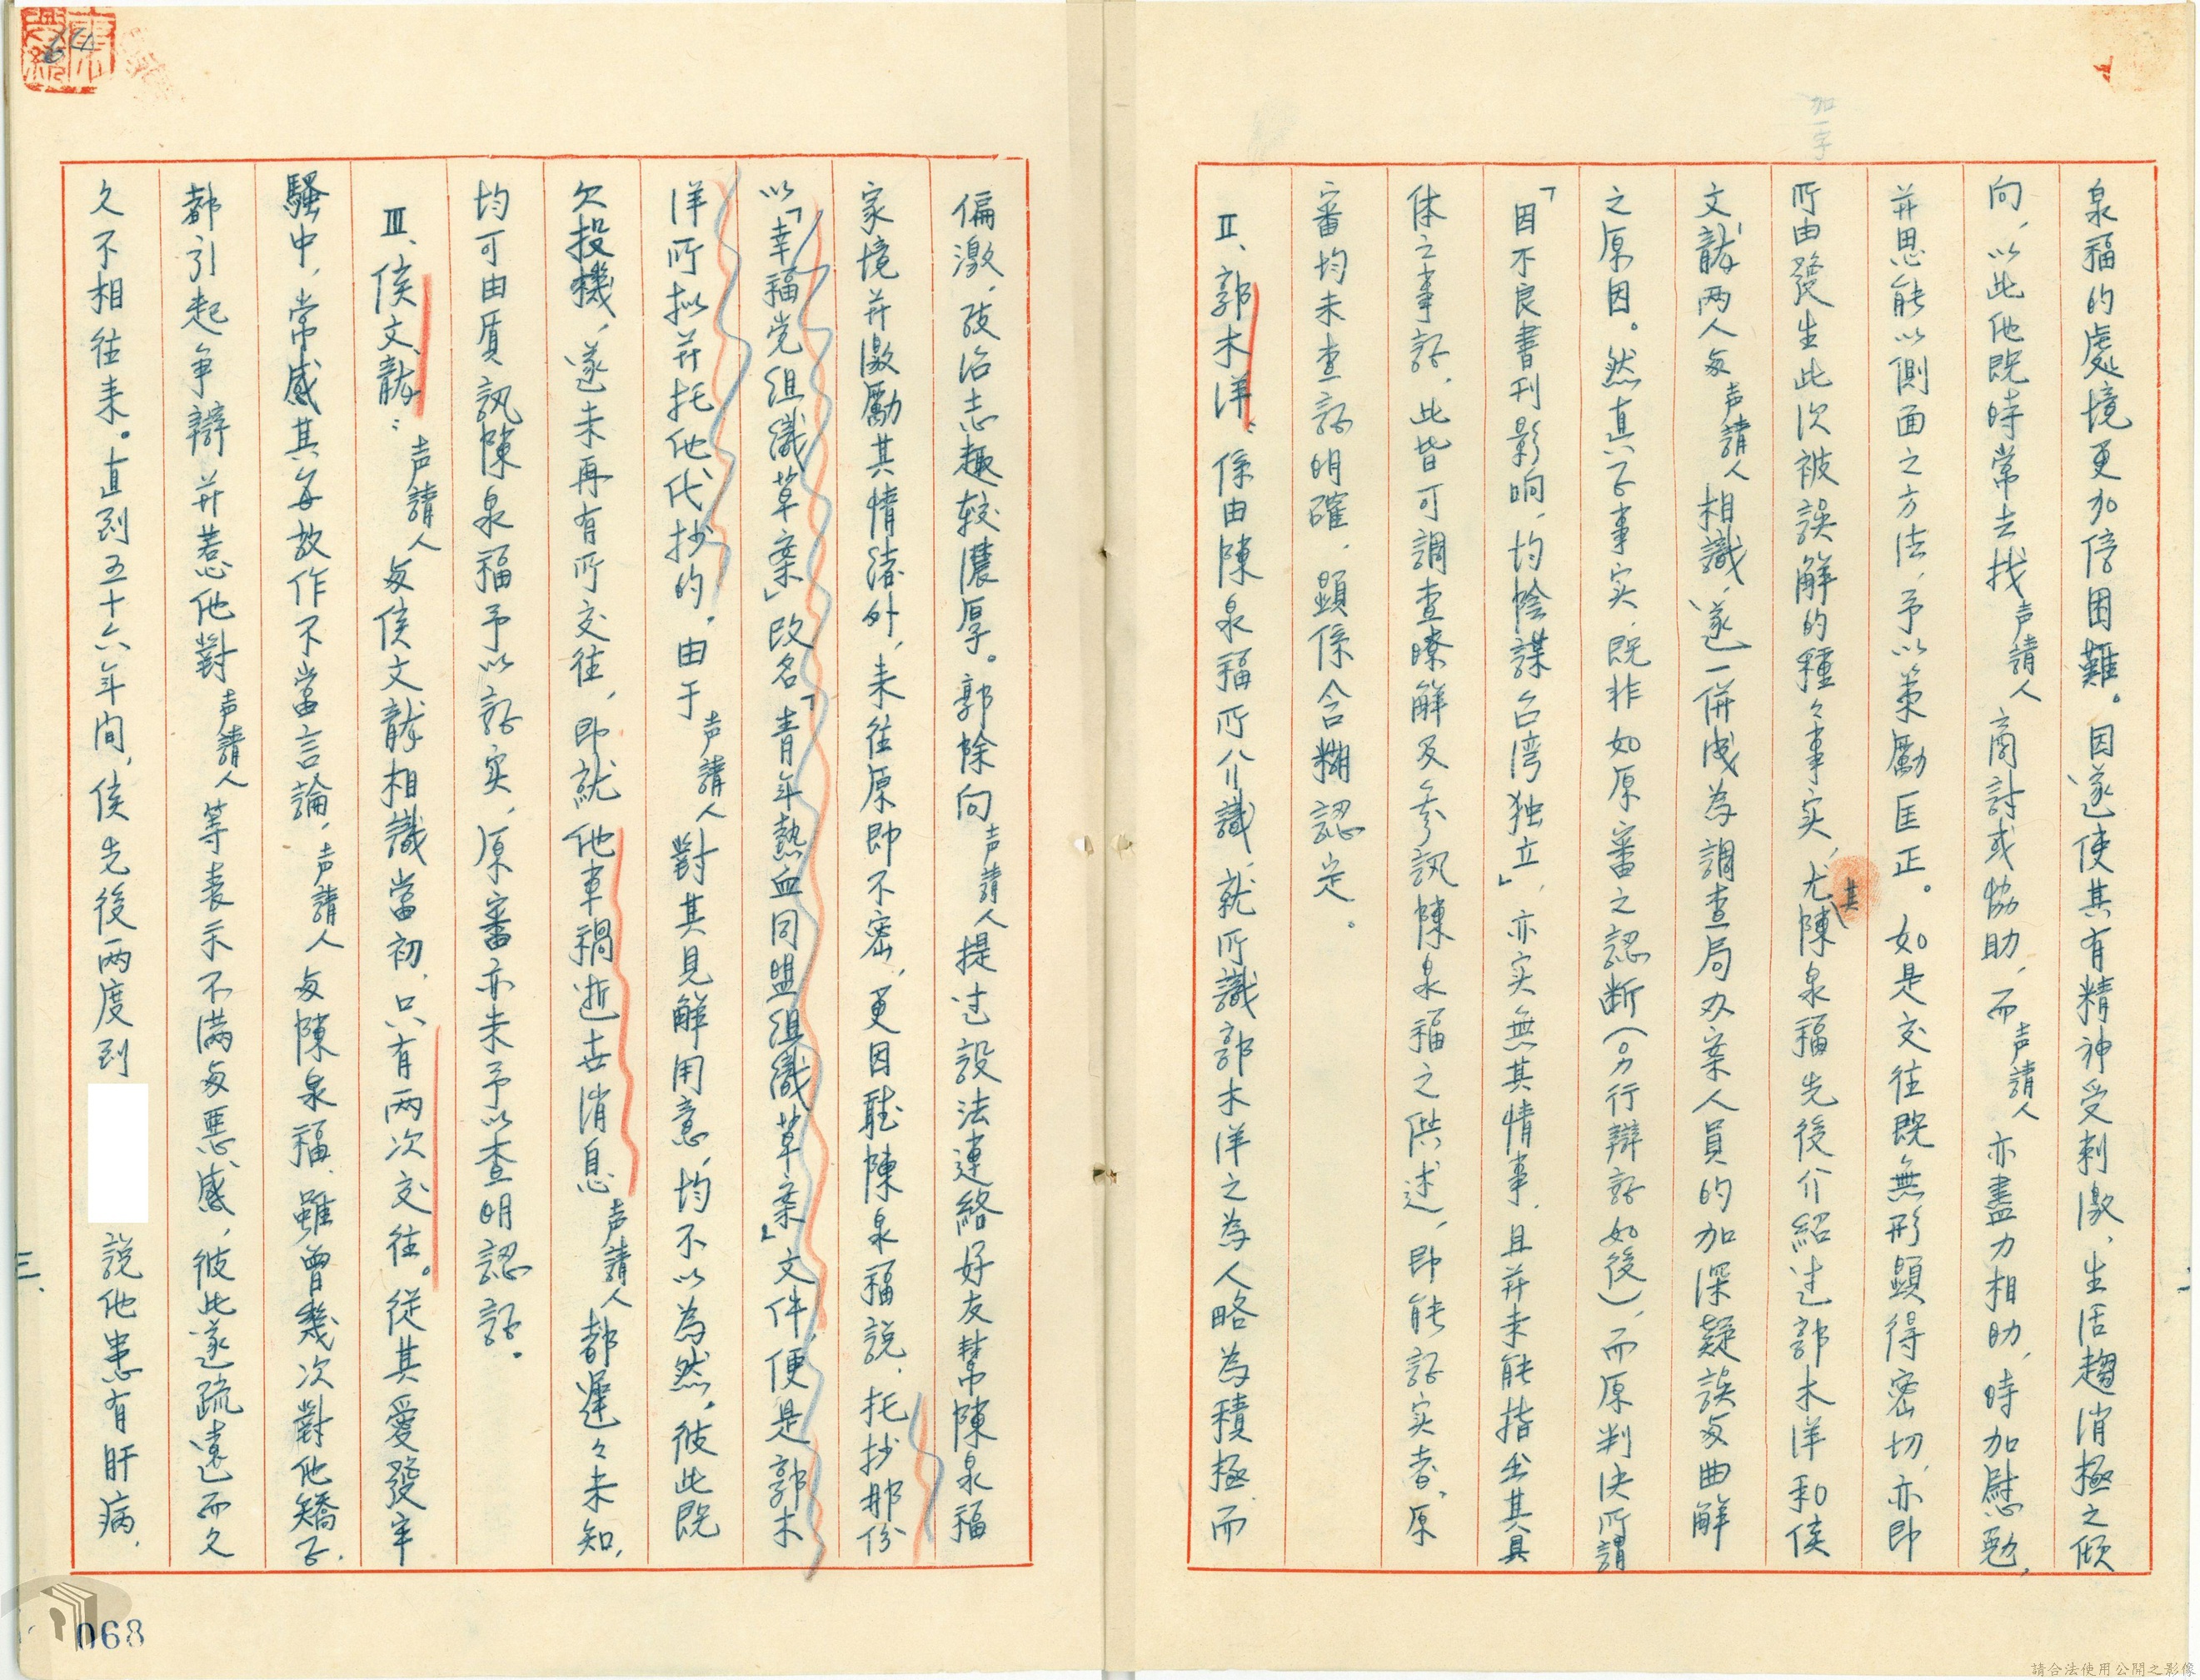 加一字
泉福的處境更加倍困難。因遂使其有精神受刺激、生活趨消極之傾
向，以此他既時常去找声請人商討或協助，而声請人亦盡力相助，時加慰勉，
并思能以側面之方法，予以策勵匡正。如是交往既無形顯得密切，亦即
所由發生此次被誤解的種々事实，尤其陳泉福先後介紹过郭木洋和侯
文龍两人与声請人相識，遂一併成為調查局办案人員的加深疑誤与曲解
之原因。然真正事实，既非如原審之認断(另行辯証如後)，而原判决所謂
「因不良書刊影响，均陰謀台湾独立」，亦实無其情事，且并未能指出其具
体之事証，此皆可調查瞭解及参訊陳泉福之供述，即能証实者，原
審均未查証明確，顯係含糊認定。
Ⅱ、郭木洋：係由陳泉福所介識，就所識郭木洋之為人略為積極而
偏激，政治志趣较濃厚。郭除向声請人提过設法連絡好友幫陳泉福
家境并激勵其情緒外，来往原即不密，更因聽陳泉福說，托抄那份
以「幸福党組織草案」改名「青年熱血同盟組織草案」文件，便是郭木
洋所拟并托他代抄的，由于声請人對其見解用意，均不以為然，彼此既
欠投機，遂未再有所交往，即就他車禍逝世消息声請人都遲々未知，
均可由質訊陳泉福予以証实，原審亦未予以查明認証。
Ⅲ、侯文龍：声請人与侯文龍相識當初，只有两次交往。從其愛發牢
騷中，常感其每故作不當言論，声請人与陳泉福，雖曾幾次對他矯正，
都引起争辯并惹他對声請人等表示不满与惡感，彼此遂疏遠而久
久不相往来。直到五十六年間，侯先後两度到 說他患有肝病，
三、
068
請合法使用公開之影像